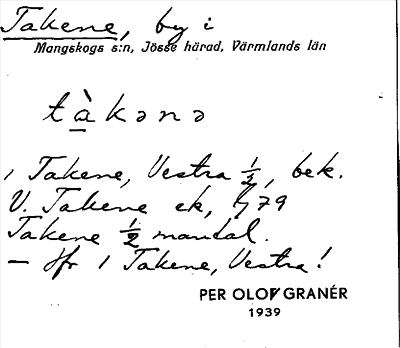 Takene, by i
Mangskogs s:n, Jösse härad, Värmlands län
tàkənə
1 Takene, Vestra 1/2, bek.
V. Takene ek, 79
Takene 1/2 mantal.
– Jfr 1 Takene, Vestra!
PER OLOF GRANÉR
1939